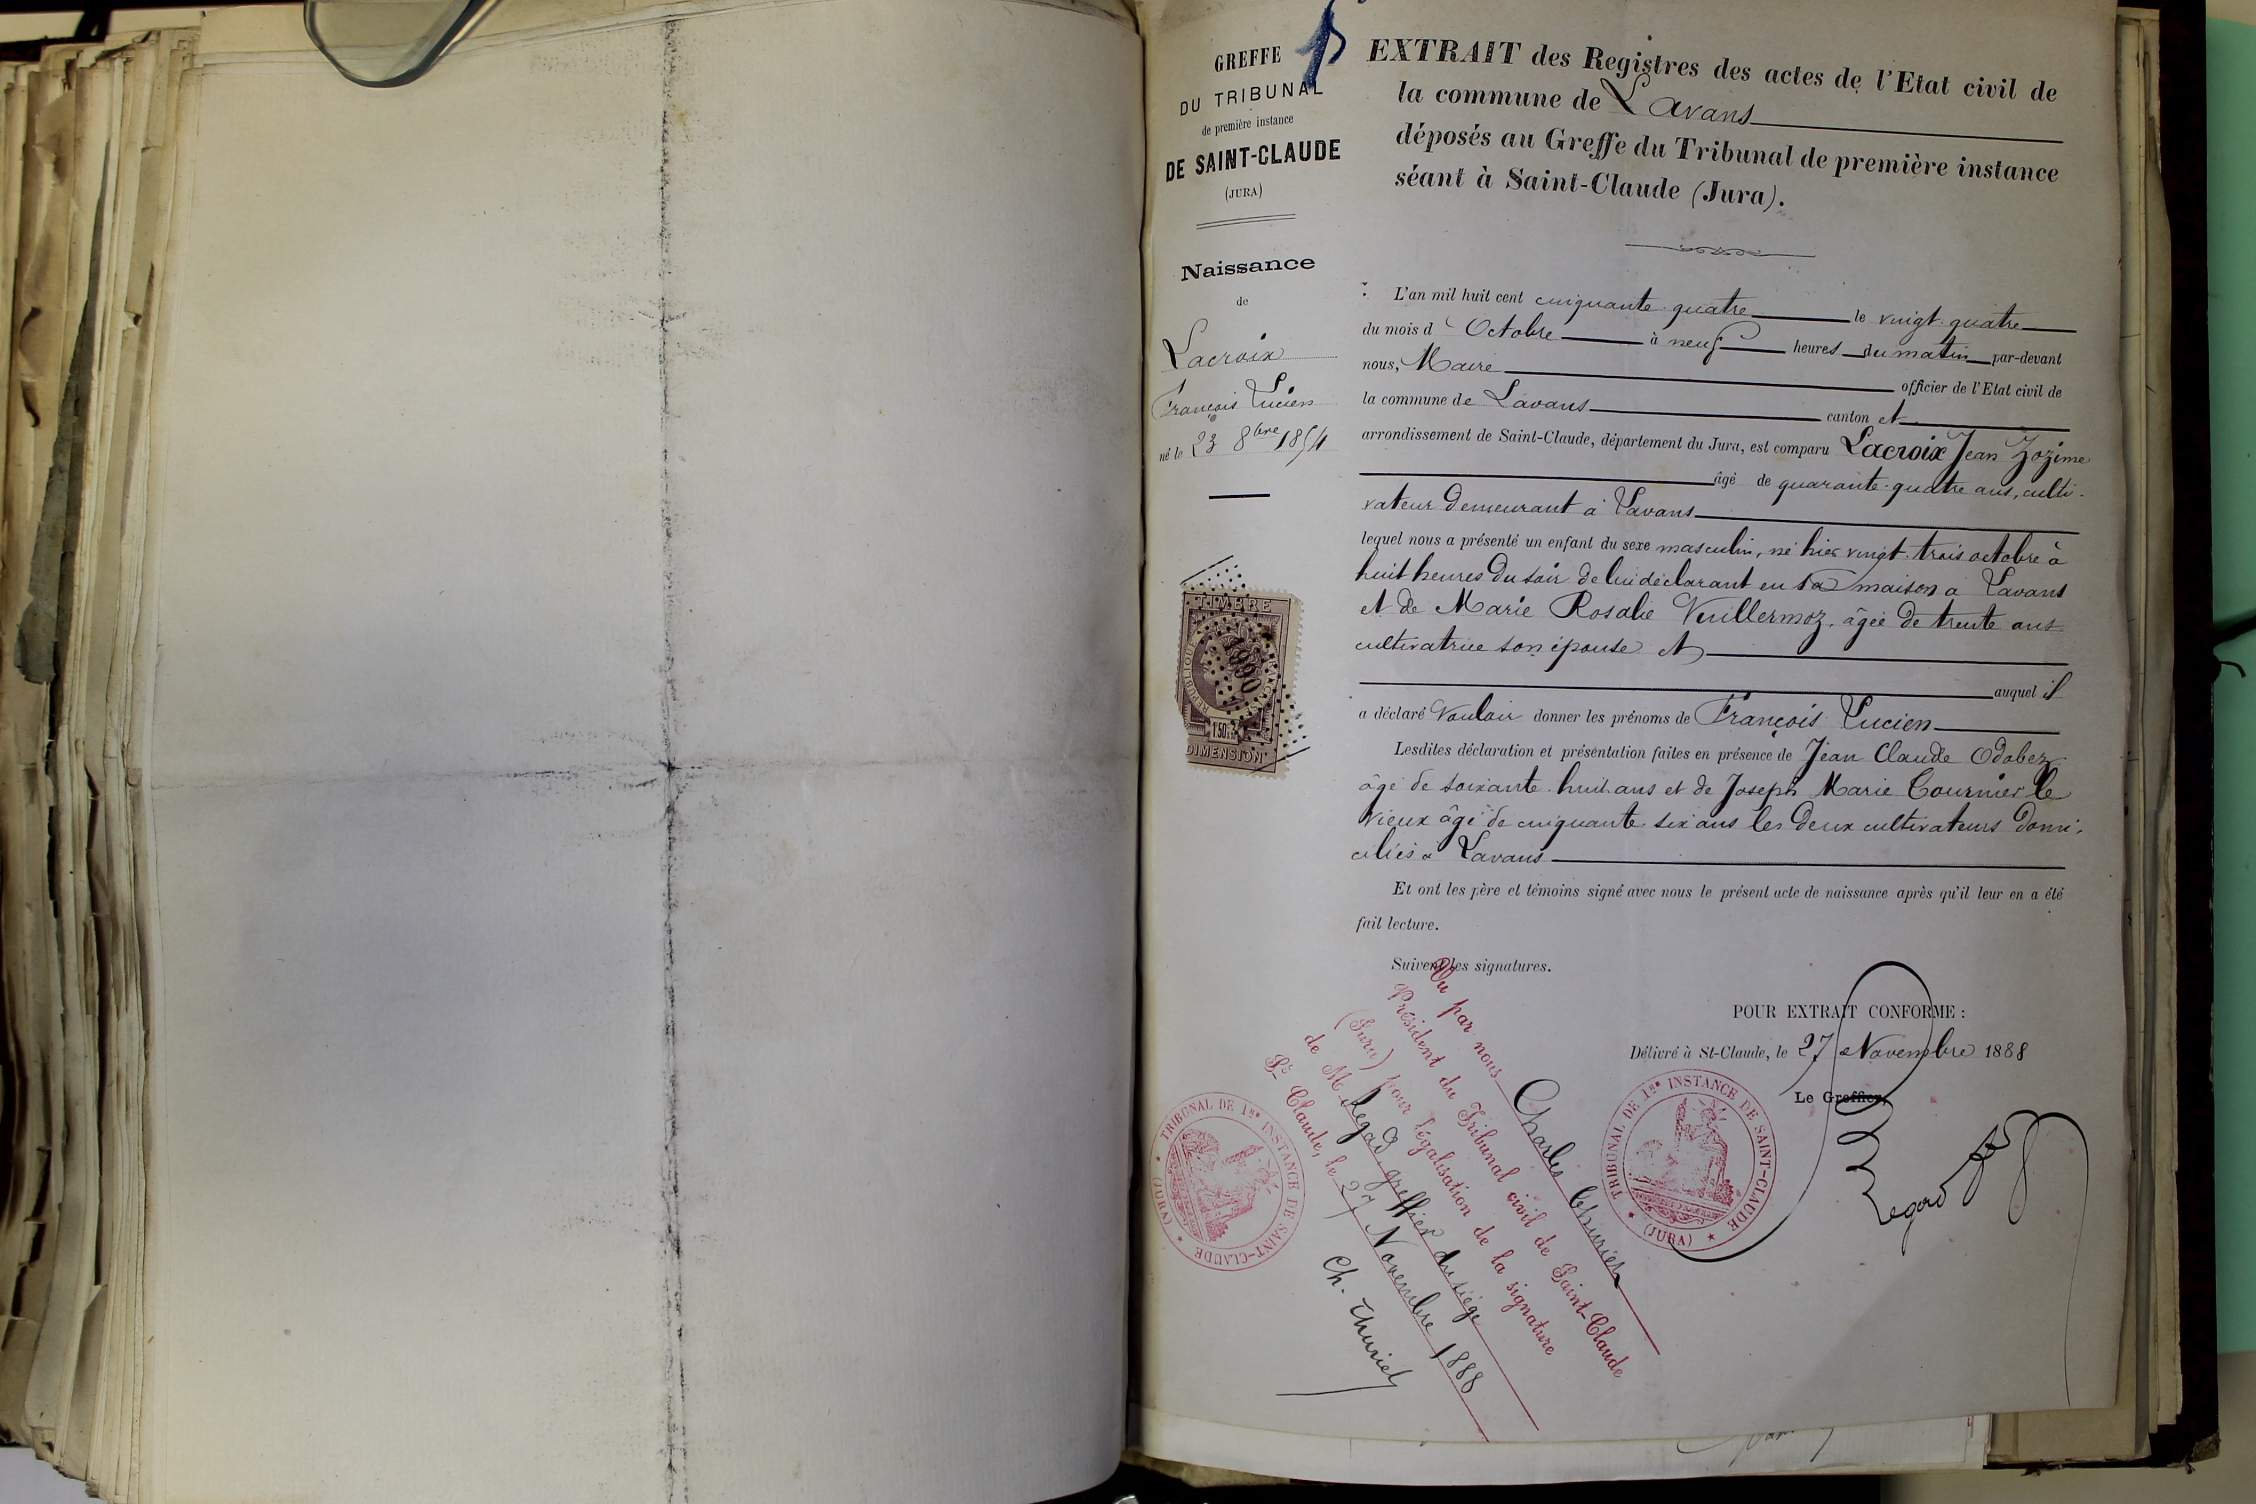 GREFFE
DU TRIBUNAL
de première instance
DE SAINT-CLAUDE
(JURA)
EXTRAIT des Registres des actes de l'Etat civil de
la commune de Lavans
déposés au Greffe du Tribunal de première instance
séant à Saint-Claude (Jura).
Naissance
de
Lacroix
François Lucien
né le 23 8bre 1854
TIMBRE
REPUBLIQUE FRANÇAISE
DIMENSION
L'an mil huit cent cinquante-quatre le vingt-quatre
du mois d'Octobre à neuf heures du matin par-devant
nous, Maire officier de l'Etat civil de
la commune de Lavans canton et
arrondissement de Saint-Claude, département du Jura, est comparu Lacroix Jean Zozime
âgé de quarante-quatre ans, culti-
vateur demeurant à Lavans
lequel nous a présenté un enfant du sexe masculin, né hier vingt-trois octobre à
huit heures du soir de lui déclarant en sa maison à Lavans
et de Marie Rosalie Vuillermoz, âgée de trente ans
cultivatrice son épouse et
auquel il
a déclaré vouloir donner les prénoms de François Lucien
Lesdites déclaration et présentation faites en présence de Jean Claude Odobez
âgé de soixante-huit ans et de Joseph Marie Cournier le
vieux âgé de cinquante-six ans les deux cultivateurs domi-
ciliés à Lavans
Et ont les père et témoins signé avec nous le présent acte de naissance après qu'il leur en a été
fait lecture.
Suivent les signatures.
POUR EXTRAIT CONFORME :
Délivré à St-Claude, le 27 Novembre 1888
Le Greffier,
Vu par nous Charles Thuriet
Président du Tribunal civil de Saint-Claude
(Jura) pour légalisation de la signature
de M. Regad greffier du siége
St Claude, le 27 Novembre 1888
Ch. Thuriet
TRIBUNAL DE 1re INSTANCE DE SAINT-CLAUDE
(JURA)
TRIBUNAL DE 1re INSTANCE DE SAINT-CLAUDE
(JURA)